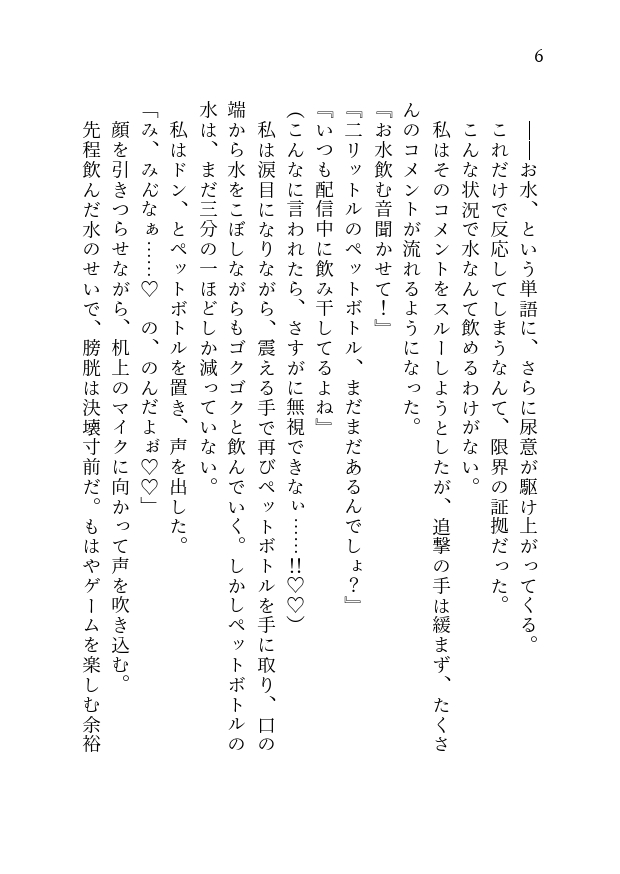 6
――お水、という単語に、さらに尿意が駆け上がってくる。
これだけで反応してしまうなんて、限界の証拠だった。
こんな状況で水なんて飲めるわけがない。
私はそのコメントをスルーしようとしたが、追撃の手は緩まず、たくさ
んのコメントが流れるようになった。
『お水飲む音聞かせて！』
『二リットルのペットボトル、まだまだあるんでしょ？』
『いつも配信中に飲み干してるよね』
（こんなに言われたら、さすがに無視できなぃ……!!♡♡）
私は涙目になりながら、震える手で再びペットボトルを手に取り、口の
端から水をこぼしながらもゴクゴクと飲んでいく。しかしペットボトルの
水は、まだ三分の一ほどしか減っていない。
私はドン、とペットボトルを置き、声を出した。
「み、みんなぁ……♡　の、のんだよぉ♡♡」
顔を引きつらせながら、机上のマイクに向かって声を吹き込む。
先程飲んだ水のせいで、膀胱は決壊寸前だ。もはやゲームを楽しむ余裕